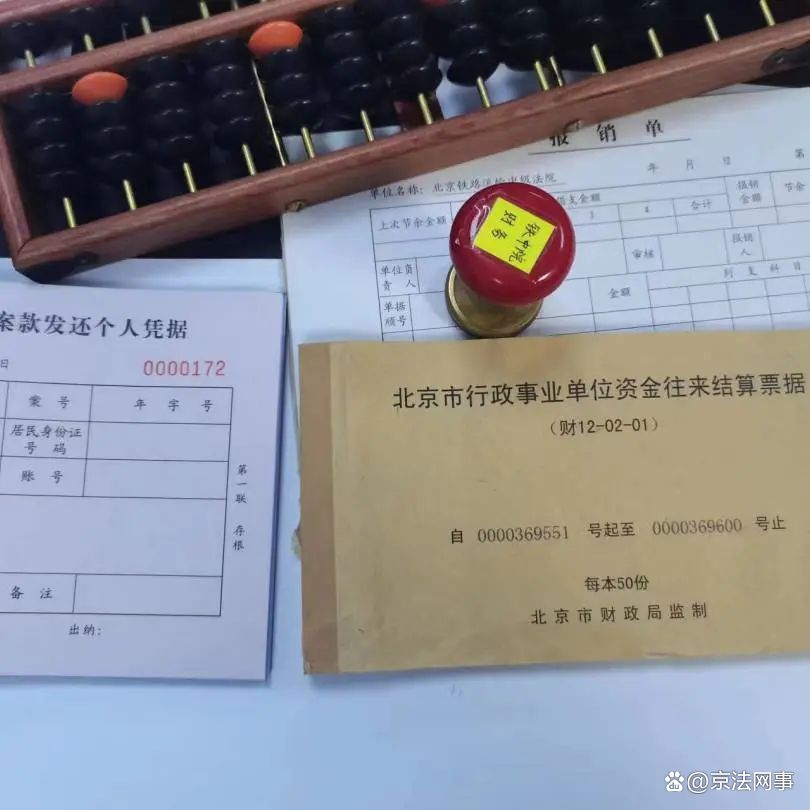 报销单
年 月 日 第
单位名称: 北京铁路运输中级法院
上次节余金额
支金额
3 4 合计
报销金额
节余
单位负责人
审核
报销人
单据顺号
金额
列支科目
铁中院
财务
案款发还个人凭据
日
0000172
案号 年 字 号
居民身份证号码
账号
第一联 存根
备注
出纳:
北京市行政事业单位资金往来结算票据
(财12-02-01)
自 0000369551 号起至 0000369600 号止
每本50份
北京市财政局监制
京法网事